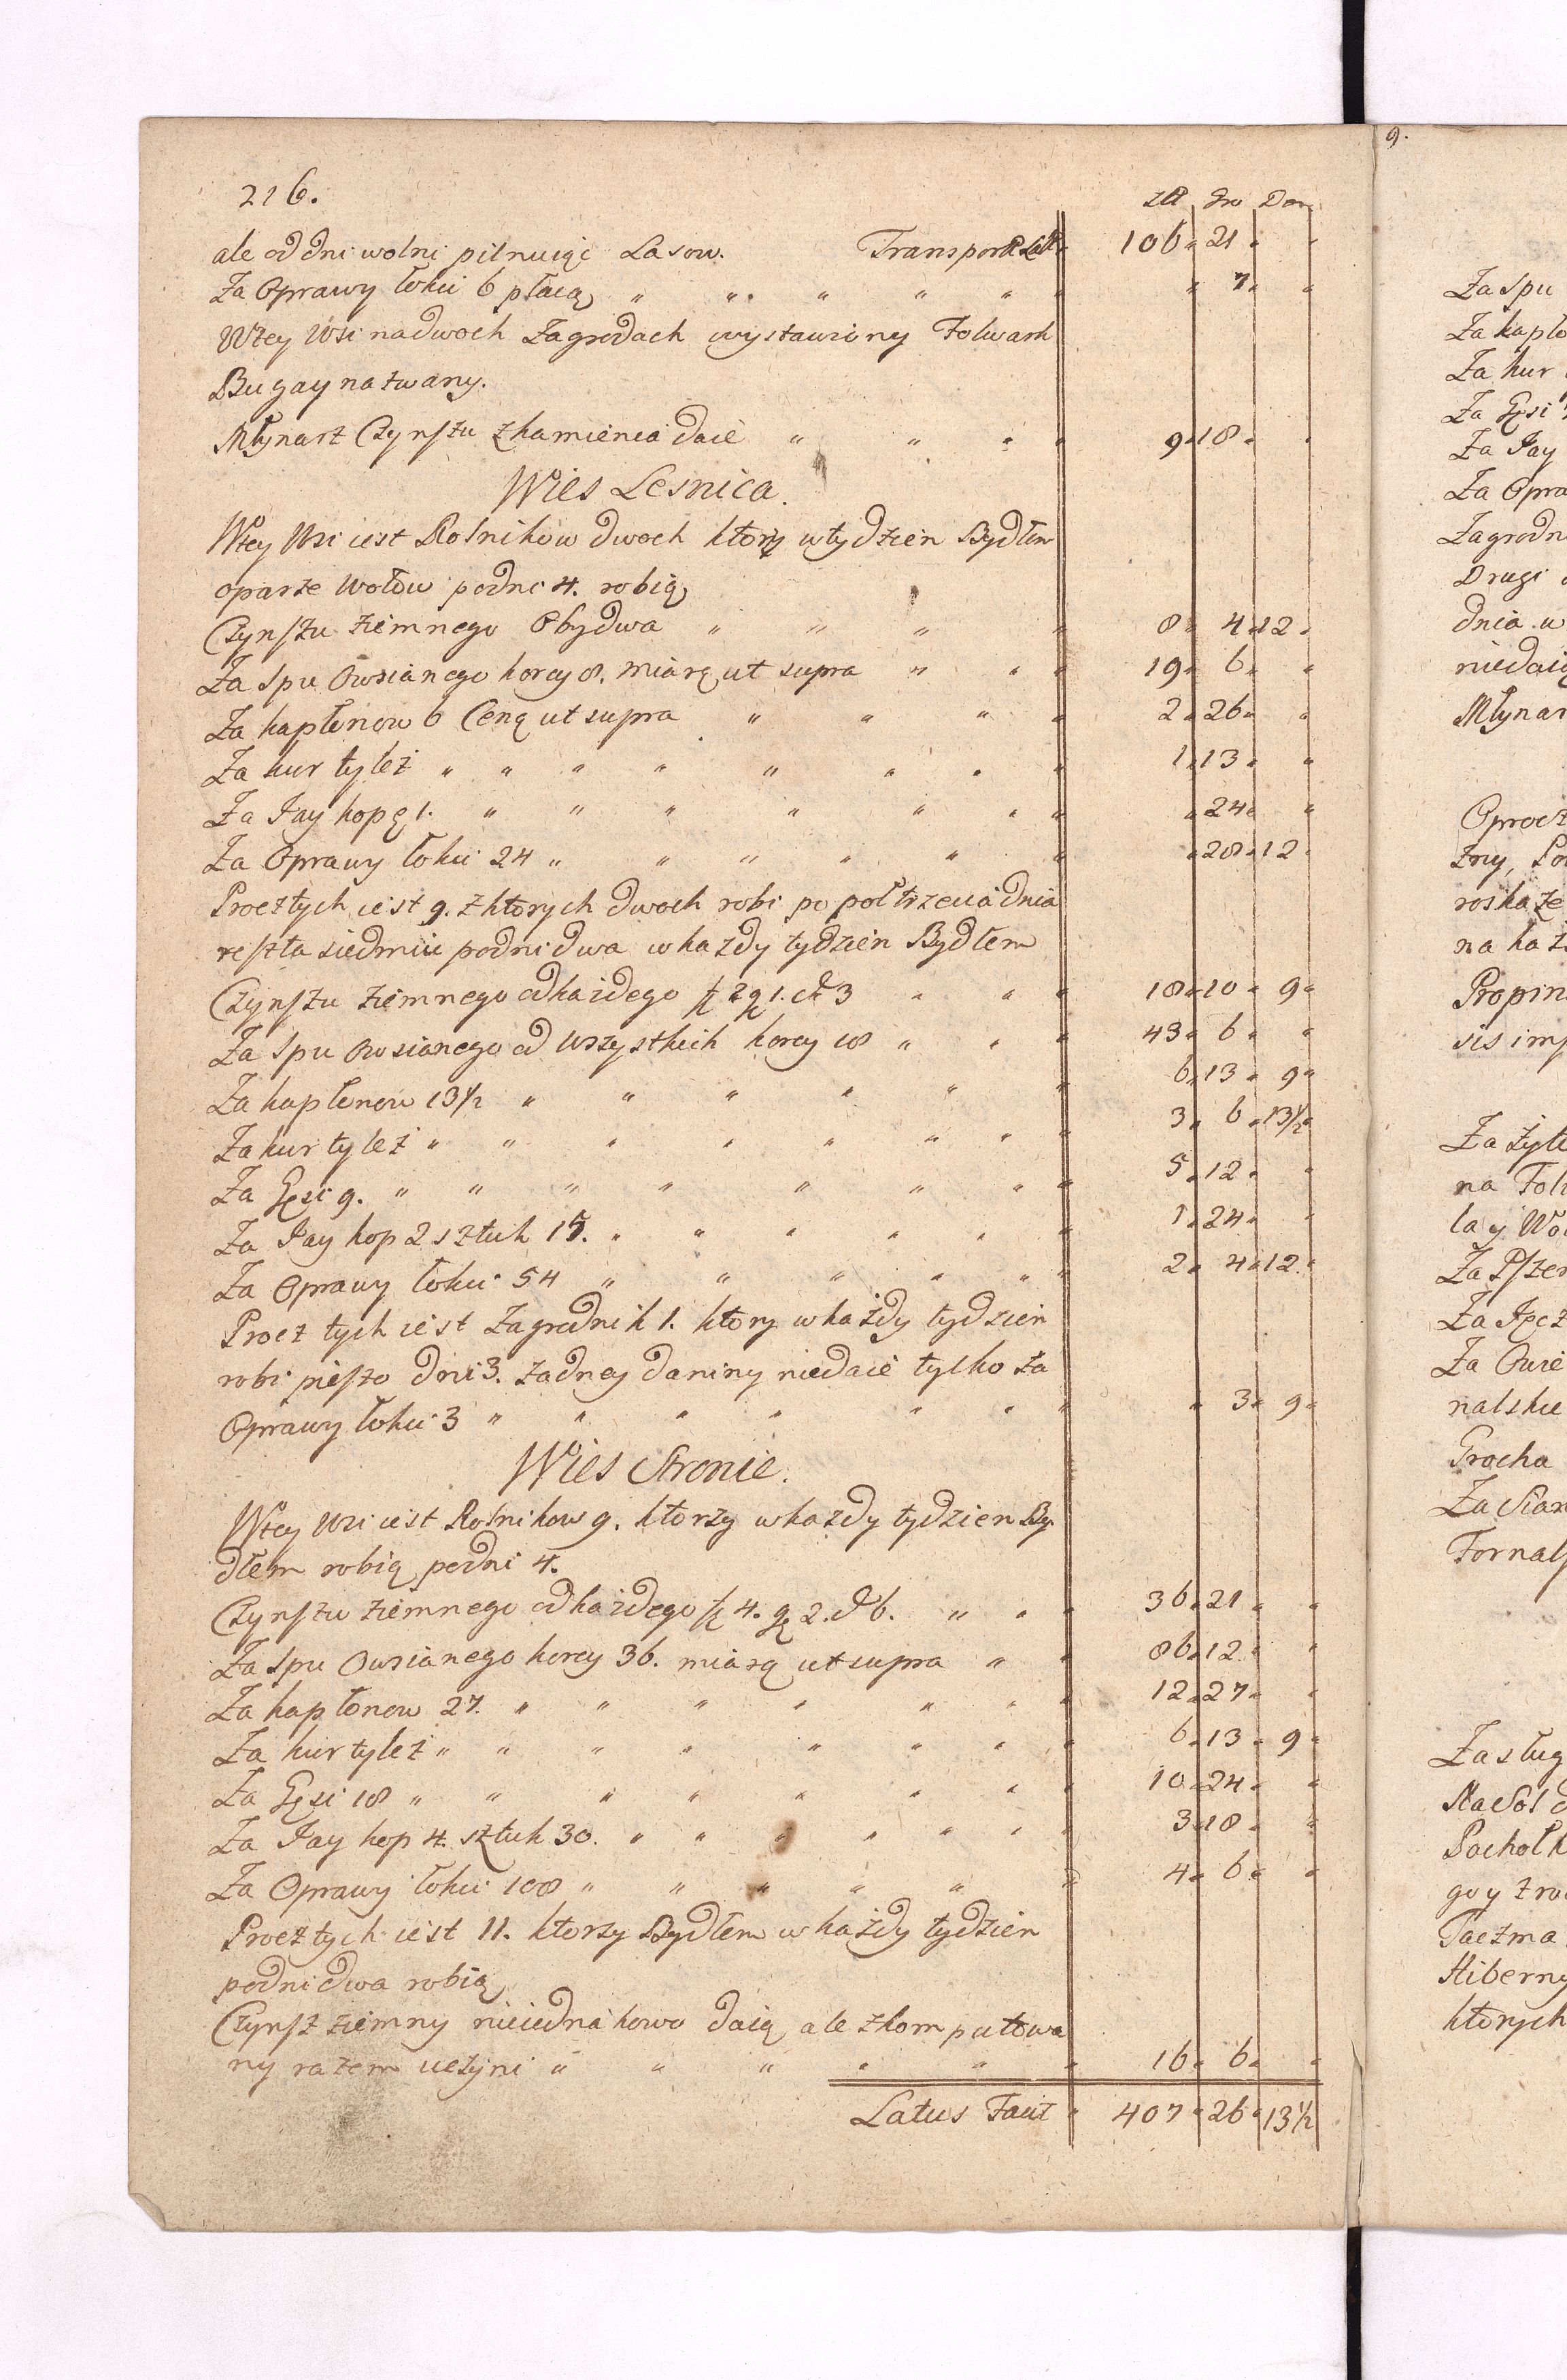 216.
złt Gro Den
ale od dni wolni pilnuiąc Lasow. Transport 106 " 21 " "
Za Oprawy łokci 6 płacą " " " " " " " 7 " "
Wtey Wsi na dwoch Zagrodach wystawiony Folwark
Bugay nazwany.
Młynarz Czynszu z kamienia daie " " " " 9 " 18 " "
Wies Lesnica.
Wtey Wsi iest Rolnikow dwoch ktorzy w tydzien Bydłem
oparze Wołow podni 4. robią
Czynszu ziemnego Obydwa " " " " 8 " 4 " 12 "
Za Spu Owsianego korcy 8. miarą ut supra " " " 19 " 6 " "
Za kapłonow 6 Ceną ut supra " " " " 2 " 26 " "
Za kur tyleż " " " " " " " " 1 " 13 " "
Za Jay kopę 1. " " " " " " " " 24 " "
Za Oprawy łokci 24 " " " " " " " 28 " 12 "
Procz tych iest 9. z ktorych dwoch robi po poltrzecia dnia
reszta siedmiu podni dwa w każdy tydzien Bydłem
Czynszu ziemnego od każdego zł 2 g 1. d 3 " " " 18 " 10 " 9 "
Za Spu Owsianego od Wszystkich korcy 18 " " " 43 " 6 " "
Za kapłonow 13½ " " " " " " 6 " 13 " 9 "
Za kur tyleż " " " " " " " " 3 " 6 " 13½ "
Za Gęsi 9. " " " " " " " " 5 " 12 " "
Za Jay kop 2 sztuk 15. " " " " " " 1 " 24 " "
Za Oprawy łokci 54 " " " " " " 2 " 4 " 12 "
Procz tych iest Zagrodnik 1. ktory w każdy tydzien
robi pieszo dni 3. żadney daniny niedaie tylko za
Oprawy łokci 3 " " " " " " " " 3 " 9 "
Wies Stronie.
Wtey Wsi iest Rolnikow 9. ktorzy w kazdy tydzien By
dłem robią podni 4.
Czynszu ziemnego od każdego zł 4. g 2. d 6. " " " 36 " 21 " "
Za Spu Owsianego korcy 36. miarą ut supra " " 86 " 12 " "
Za kapłonow 27. " " " " " " " 12 " 27 " "
Za kur tyleż " " " " " " " " 6 " 13 " 9 "
Za Gęsi 18 " " " " " " " " 10 " 24 " "
Za Jay kop 4. sztuk 30. " " " " " " " 3 " 18 " "
Za Oprawy łokci 108 " " " " " " 4 " 6 " "
Procz tych iest 11. ktorzy Bydłem w każdy tydzien
podni dwa robią
Czynsz ziemny nieiednakowo daią ale zkomputowa
ny razem uczyni " " " " " " 16 " 6 " "
Latus Facit " 407 " 26 " 13½
9.
Za Spu
Za kapło
Za kur
Za Gęsi
Za Jay
Za Opra
Zagrodn
Drugi
dnia w
niedaią
Młynar
Oprocz
zny,
roskaze
na kaz
Propin
sis imp
Za żyte
na Fol
la y Wo
Za Pszen
Za Jęcz
Za Owie
nalskie
Grocha
Za Sian
Fornals
Zasług
Na Sol
Pachołk
go y zro
Taczma
Hiberny
ktorych